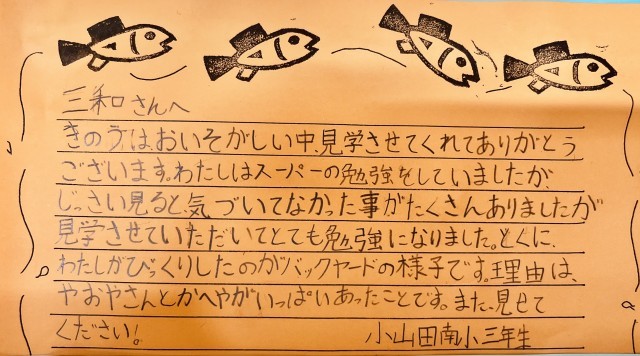 三和さんへ
きのうはおいそがしい中、見学させてくれてありがとう
ございます。わたしはスーパーの勉強をしていましたが、
じっさい見ると、気づいてなかった事がたくさんありましたが
見学させていただいてとても勉強になりました。とくに、
わたしがびっくりしたのがバックヤードの様子です。理由は、
やおやさんとかへやがいっぱいあったことです。また、見せて
ください!
小山田南小三年生